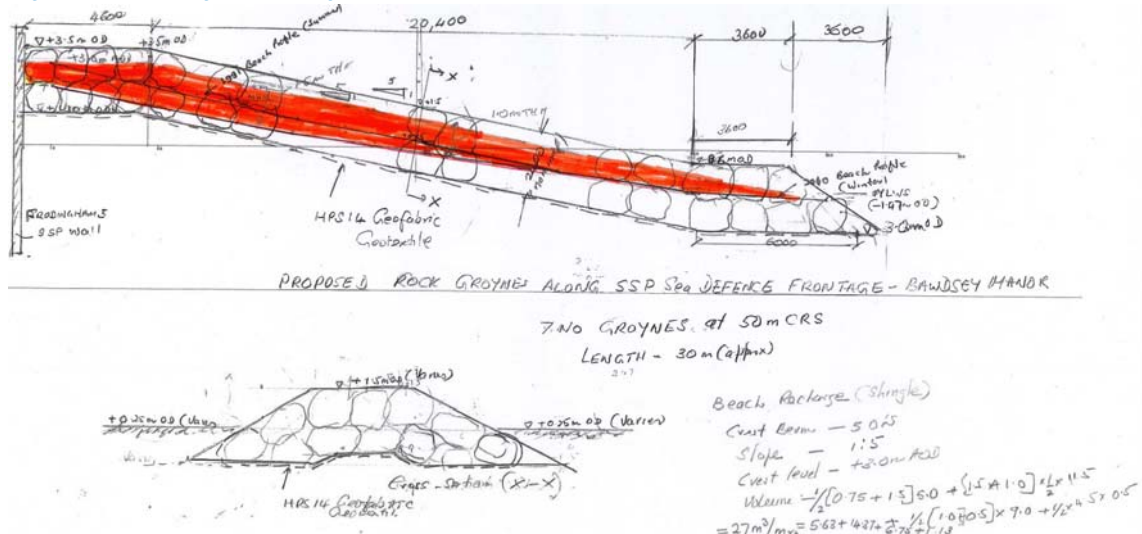 4600
20,400
3600
3600
+3.5m OD
+3.5m OD
Beach Profile (Summer)
5
1
X
1.0m THK
3600
Beach Profile
(Winter)
MLWS
(-1.47m OD)
X
HPS14 Geofabric
Geotextile
FRODINGHAM 5
SSP Wall
6000
PROPOSED ROCK GROYNES ALONG SSP Sea DEFENCE FRONTAGE - BAWDSEY MANOR
7 NO GROYNES at 50m CRS
LENGTH - 30m (approx)
+1.5m OD (Varies)
+0.25m OD (Varies)
+0.25m OD (Varies)
Cross-section (X-X)
HPS14 Geofabric
Geotextile
Beach Recharge (Shingle)
Crest Berm - 5.0m
Slope - 1:5
Crest level - +3.0m AOD
Volume - 1/2[0.75 + 1.5]5.0 + [1.5 + 1.0] x 1/2 x 11.5
= 27m³/m = 5.63 + 14.37 + 1/2[1.0 + 0.5] x 9.0 + 1/2 x 4.5 x 0.5